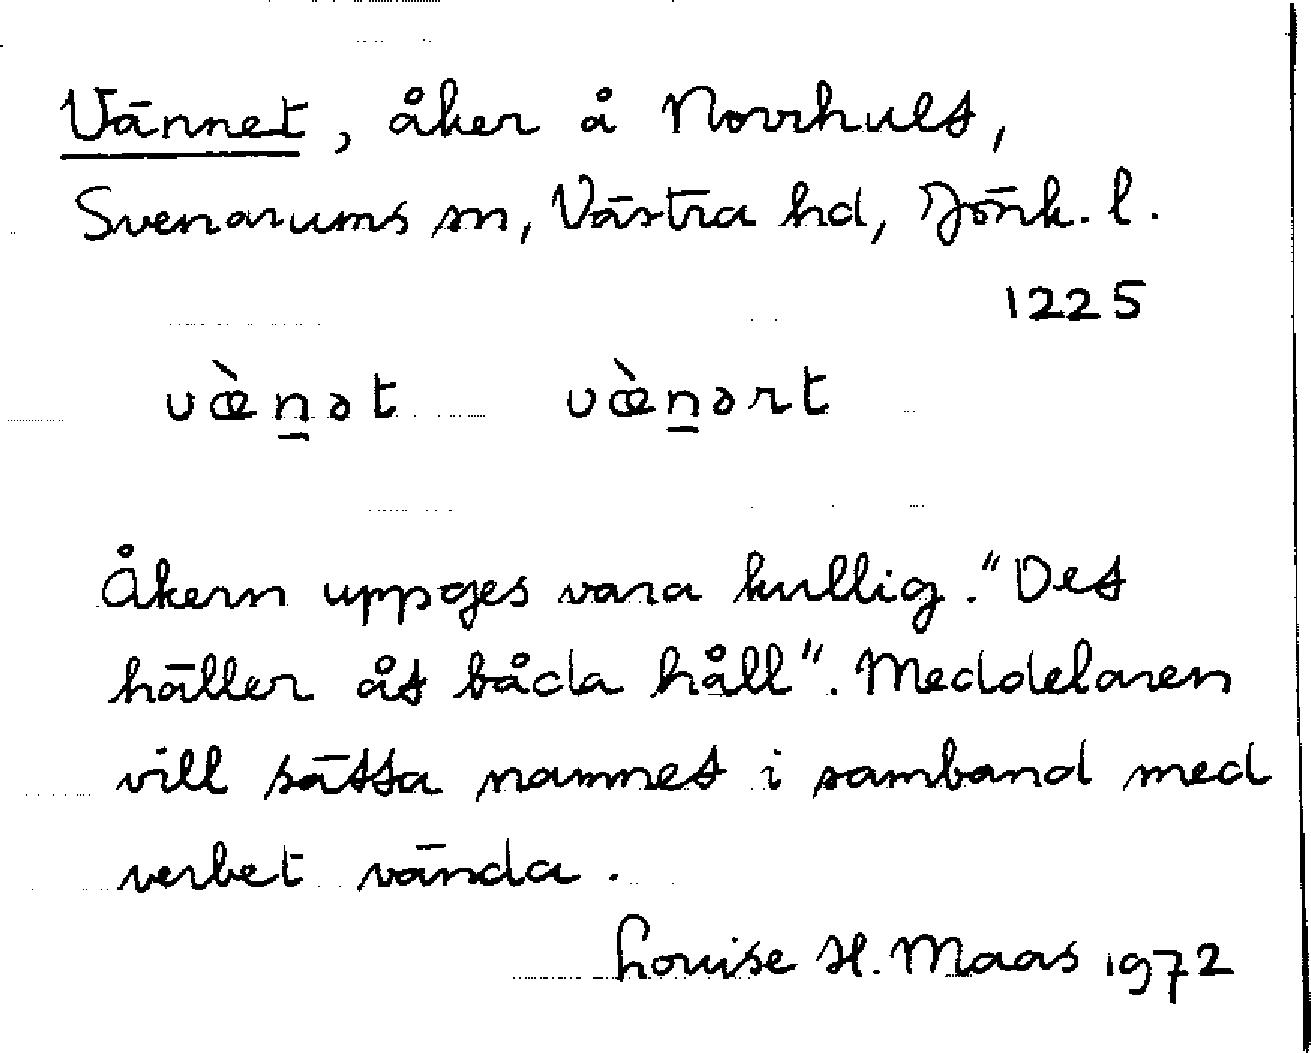 Vännet, åker å Norrhult,
Svenarums sn, Västra hd, Jönk. l.
1225
vœ̀n̲ət vœ̀n̲ərt
Åkern uppges vara kullig. "Det
häller åt båda håll". Meddelaren
vill sätta namnet i samband med
verbet vända.
Louise H. Maas 1972